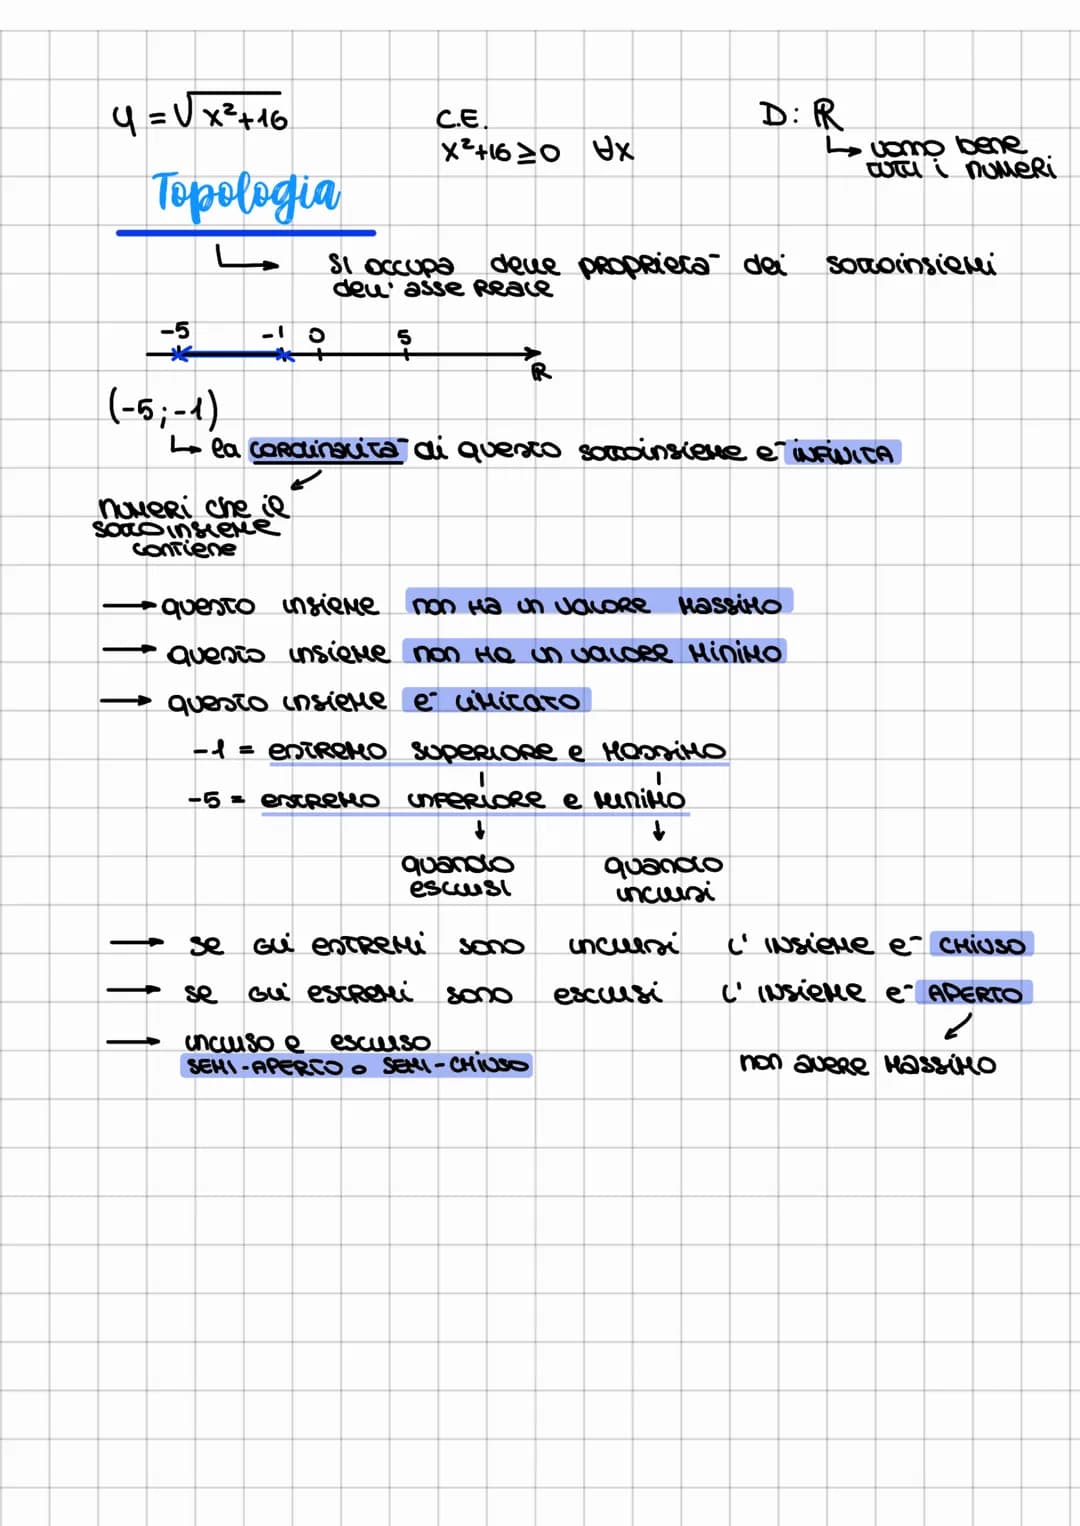 y = √x²+16 C.E. D: ℝ
x²+16 ≥ 0 ∀x ↳ vanno bene
tutti i numeri
Topologia
↳ si occupa delle proprietà dei sottoinsiemi
dell'asse reale
-5 -1 0 5
ℝ
(-5;-1)
↳ la cardinalità di questo sottoinsieme è infinita
numeri che il
sottoinsieme
contiene
→ questo insieme non ha un valore massimo
→ questo insieme non ha un valore minimo
→ questo insieme è limitato
-1 = estremo superiore e massimo
-5 = estremo inferiore e minimo
quando quando
esclusi inclusi
→ se gli estremi sono inclusi l'insieme è CHIUSO
→ se gli estremi sono esclusi l'insieme è APERTO
→ incluso e escluso
SEMI-APERTO o SEMI-CHIUSO non avere massimo